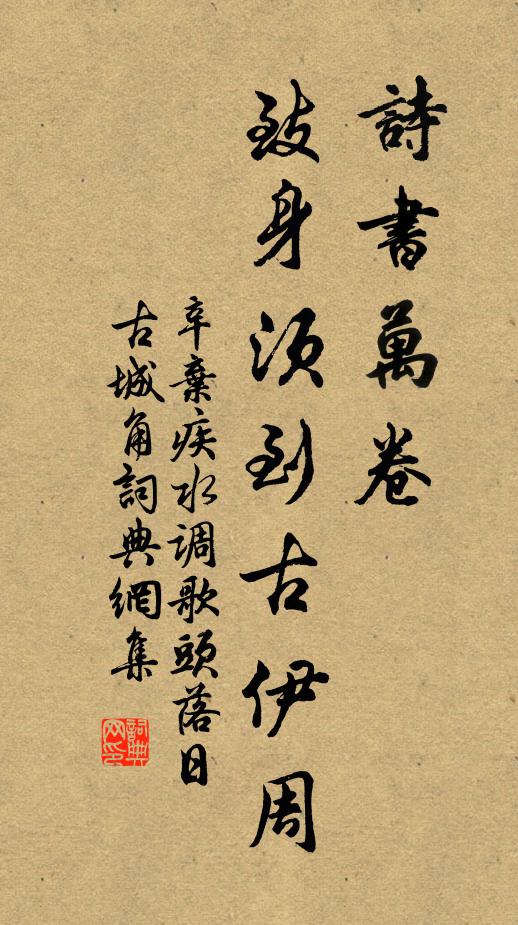 詩書萬卷
致身須到古伊周
辛棄疾水调歌頭落日
古城角詞典網集
詞典
网印